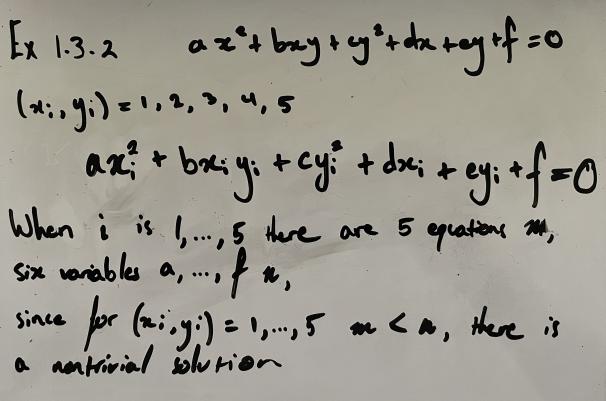 Ex 1.3.2 ax² + bxy + cy² + dx + ey + f = 0
(xᵢ, yᵢ) = 1, 2, 3, 4, 5
axᵢ² + bxᵢyᵢ + cyᵢ² + dxᵢ + eyᵢ + f = 0
When i is 1,...,5 there are 5 equations m,
six variables a, ..., f n,
since for (xᵢ, yᵢ) = 1,...,5 m < n, there is
a nontrivial solution